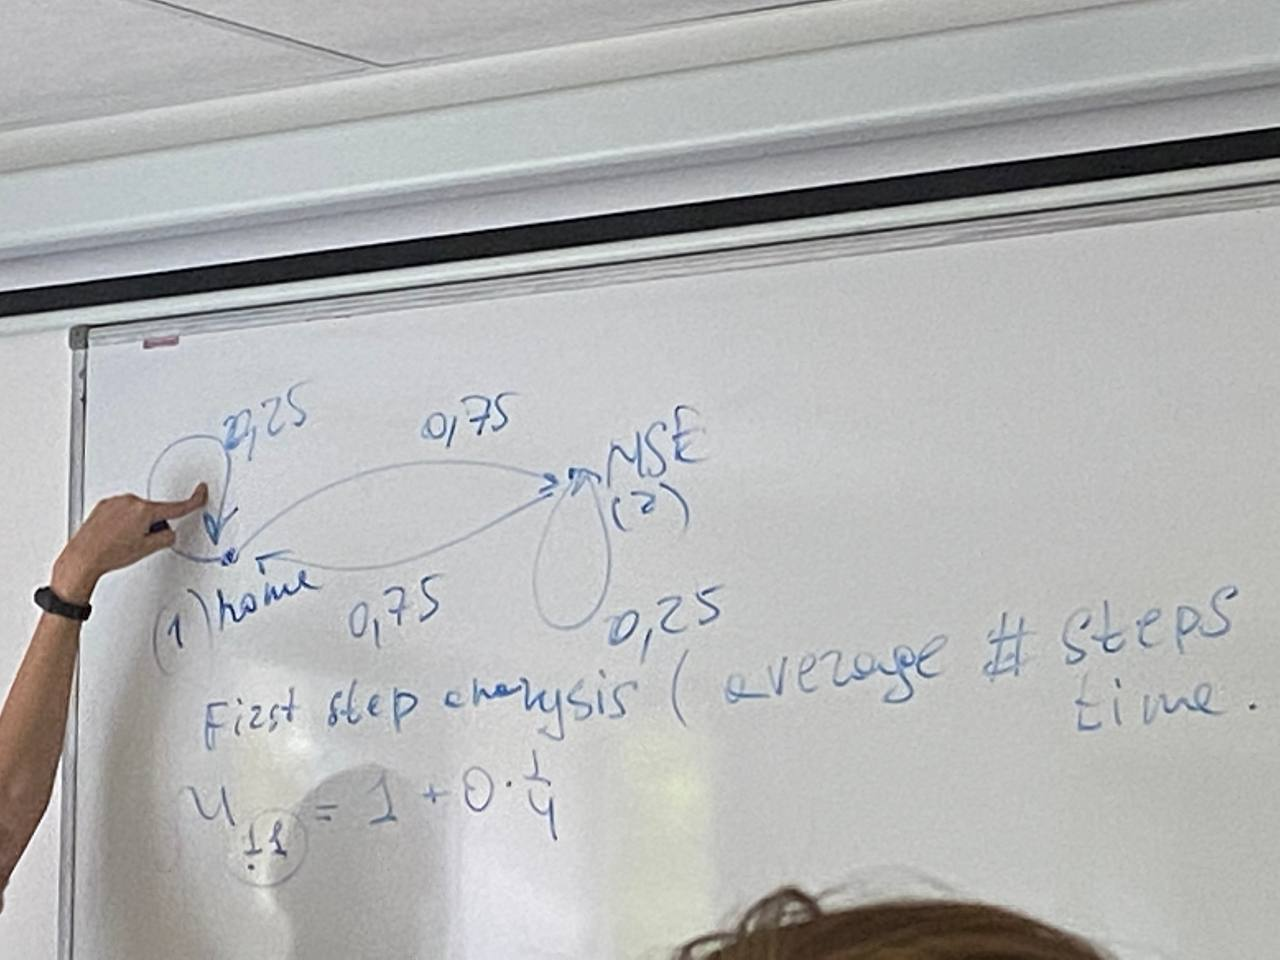 0,25
0,75
NSE
(2)
(1) home
0,75
0,25
First step analysis ( average # steps
time.
u₁₁ = 1 + 0 · 1/4